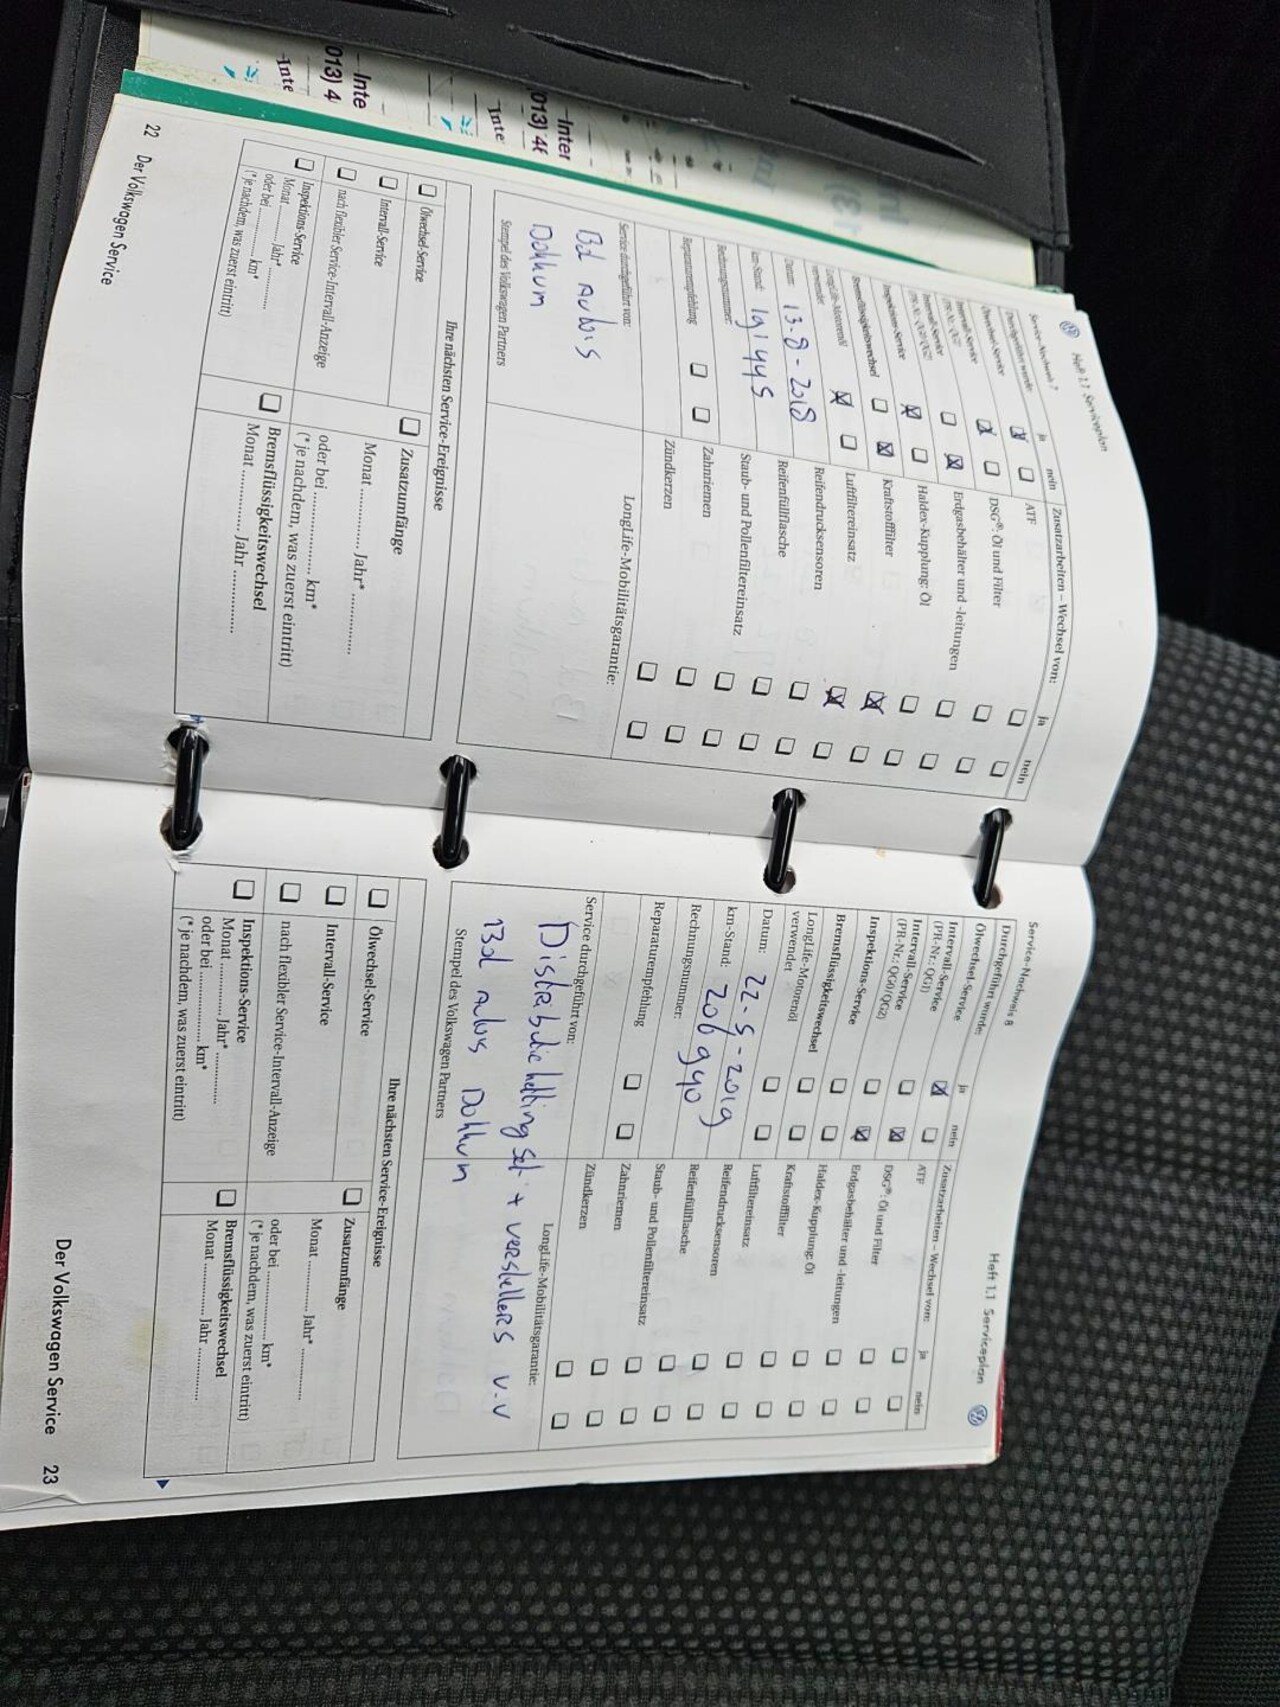 Heft 1.1 Serviceplan
Service-Nachweis 7
Durchgeführt wurde: ja nein
Ölwechsel-Service
Intervall-Service
(PR-Nr.: QG1)
Intervall-Service
(PR-Nr.: QG0/QG2)
Inspektions-Service
Bremsflüssigkeitswechsel
LongLife-Motorenöl
verwendet
Datum: 13-8-2018
km-Stand: 191445
Rechnungsnummer:
Reparaturempfehlung
Service durchgeführt von:
Bd autos
Dokkum
Stempel des Volkswagen Partners
Zusatzarbeiten – Wechsel von: ja nein
ATF
DSG®: Öl und Filter
Erdgasbehälter und -leitungen
Haldex-Kupplung: Öl
Kraftstofffilter
Luftfiltereinsatz
Reifendrucksensoren
Reifenfüllflasche
Staub- und Pollenfiltereinsatz
Zahnriemen
Zündkerzen
LongLife-Mobilitätsgarantie:
Ihre nächsten Service-Ereignisse
Ölwechsel-Service
Intervall-Service
nach flexibler Service-Intervall-Anzeige
Inspektions-Service
Monat ............ Jahr* ............
oder bei ............ km*
(*je nachdem, was zuerst eintritt)
Zusatzumfänge
Monat ............ Jahr* ............
oder bei ............ km*
(*je nachdem, was zuerst eintritt)
Bremsflüssigkeitswechsel
Monat ............ Jahr ............
22 Der Volkswagen Service
Heft 1.1 Serviceplan
Service-Nachweis 8
Durchgeführt wurde: ja nein
Ölwechsel-Service
Intervall-Service
(PR-Nr.: QG1)
Intervall-Service
(PR-Nr.: QG0/QG2)
Inspektions-Service
Bremsflüssigkeitswechsel
LongLife-Motorenöl
verwendet
Datum: 22-5-2019
km-Stand: 206940
Rechnungsnummer:
Reparaturempfehlung
Service durchgeführt von:
Distributie ketting set + verstellers v.v
Bd autos Dokkum
Stempel des Volkswagen Partners
Zusatzarbeiten – Wechsel von: ja nein
ATF
DSG®: Öl und Filter
Erdgasbehälter und -leitungen
Haldex-Kupplung: Öl
Kraftstofffilter
Luftfiltereinsatz
Reifendrucksensoren
Reifenfüllflasche
Staub- und Pollenfiltereinsatz
Zahnriemen
Zündkerzen
LongLife-Mobilitätsgarantie:
Ihre nächsten Service-Ereignisse
Ölwechsel-Service
Intervall-Service
nach flexibler Service-Intervall-Anzeige
Inspektions-Service
Monat ............ Jahr* ............
oder bei ............ km*
(*je nachdem, was zuerst eintritt)
Zusatzumfänge
Monat ............ Jahr* ............
oder bei ............ km*
(*je nachdem, was zuerst eintritt)
Bremsflüssigkeitswechsel
Monat ............ Jahr ............
Der Volkswagen Service 23